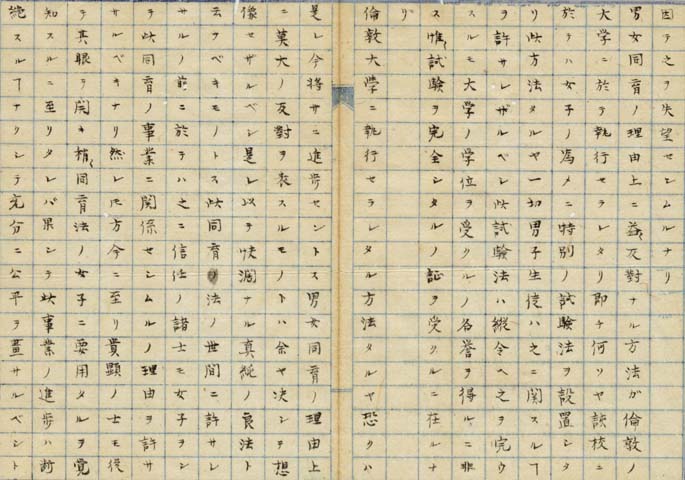 因テ之ヲ失望セシムルナリ
男女同育ノ理由上ニ益〻反對ナル方法ガ倫敦ノ
大学ニ於テ執行セラレタリ即チ何リヤ該校ニ
於テハ女子ノ為メニ特別ノ試験法ヲ設置シタ
リ此方法タルヤ一切男子生徒ハ之ニ関スルヿ
ヲ許サレザルベシ此試験法ハ縦令ヘ之ヲ完ウ
スルモ大学ノ学位ヲ受クルノ名誉ヲ得ルニ非
ス惟〻試験ヲ完全シタルノ証ヲ受クルニ在ルナ
リ
倫敦大學ニ執行セラレタル方法タルヤ恐クハ
是レ今将サニ進歩セントス男女同育ノ理由上
ニ莫大ノ反對ヲ表スルモノトハ余ヤ决シテ想
像セザルベシ是レ以テ快濶ナル真純ノ良法ト
云ヲベキモノトス此同育法ノ世間ニ許サレ
ルノ前ニ於テハ之ニ信任ノ諸士モ女子ヲシ
テ此同育ノ事業ニ関係セシムルノ理由ヲ許サ
サルベキナリ然レ𪜈方今ニ至リ貴顕ノ士モ従
テ其眼ヲ開キ稍〻同育法ノ女子ニ要用タルヲ覚
知スルニ至リタレバ果シテ此事業ノ進歩ハ
施スルヿナクシテ充分ニ公平ヲ畫サルベシト